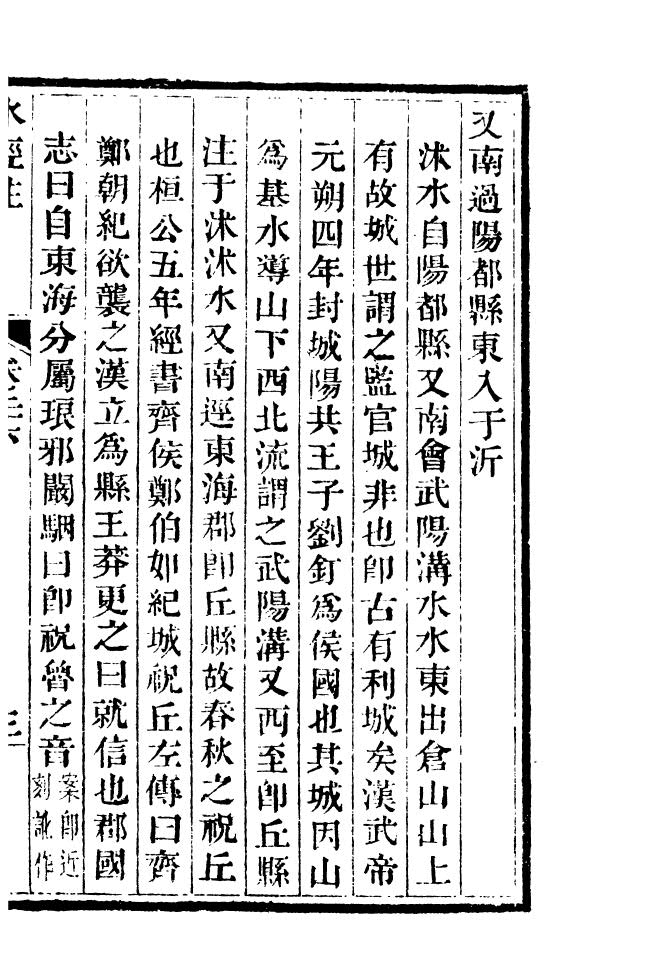 又南過陽都縣東入于沂
沭水自陽都縣又南會武陽溝水水東出倉山山上
有故城世謂之監官城非也卽古有利城矣漢武帝
元朔四年封城陽共王子劉釘爲侯國也其城因山
爲基水導山下西北流謂之武陽溝又西至卽丘縣
注于沭沭水又南逕東海郡卽丘縣故春秋之祝丘
也桓公五年經書齊侯鄭伯如紀城祝丘左傳曰齊
鄭朝紀欲襲之漢立爲縣王莽更之曰就信也郡國
志曰自東海分屬琅邪闞駰曰卽祝魯之音案卽近
刻訛作
水經注 卷二十六 三